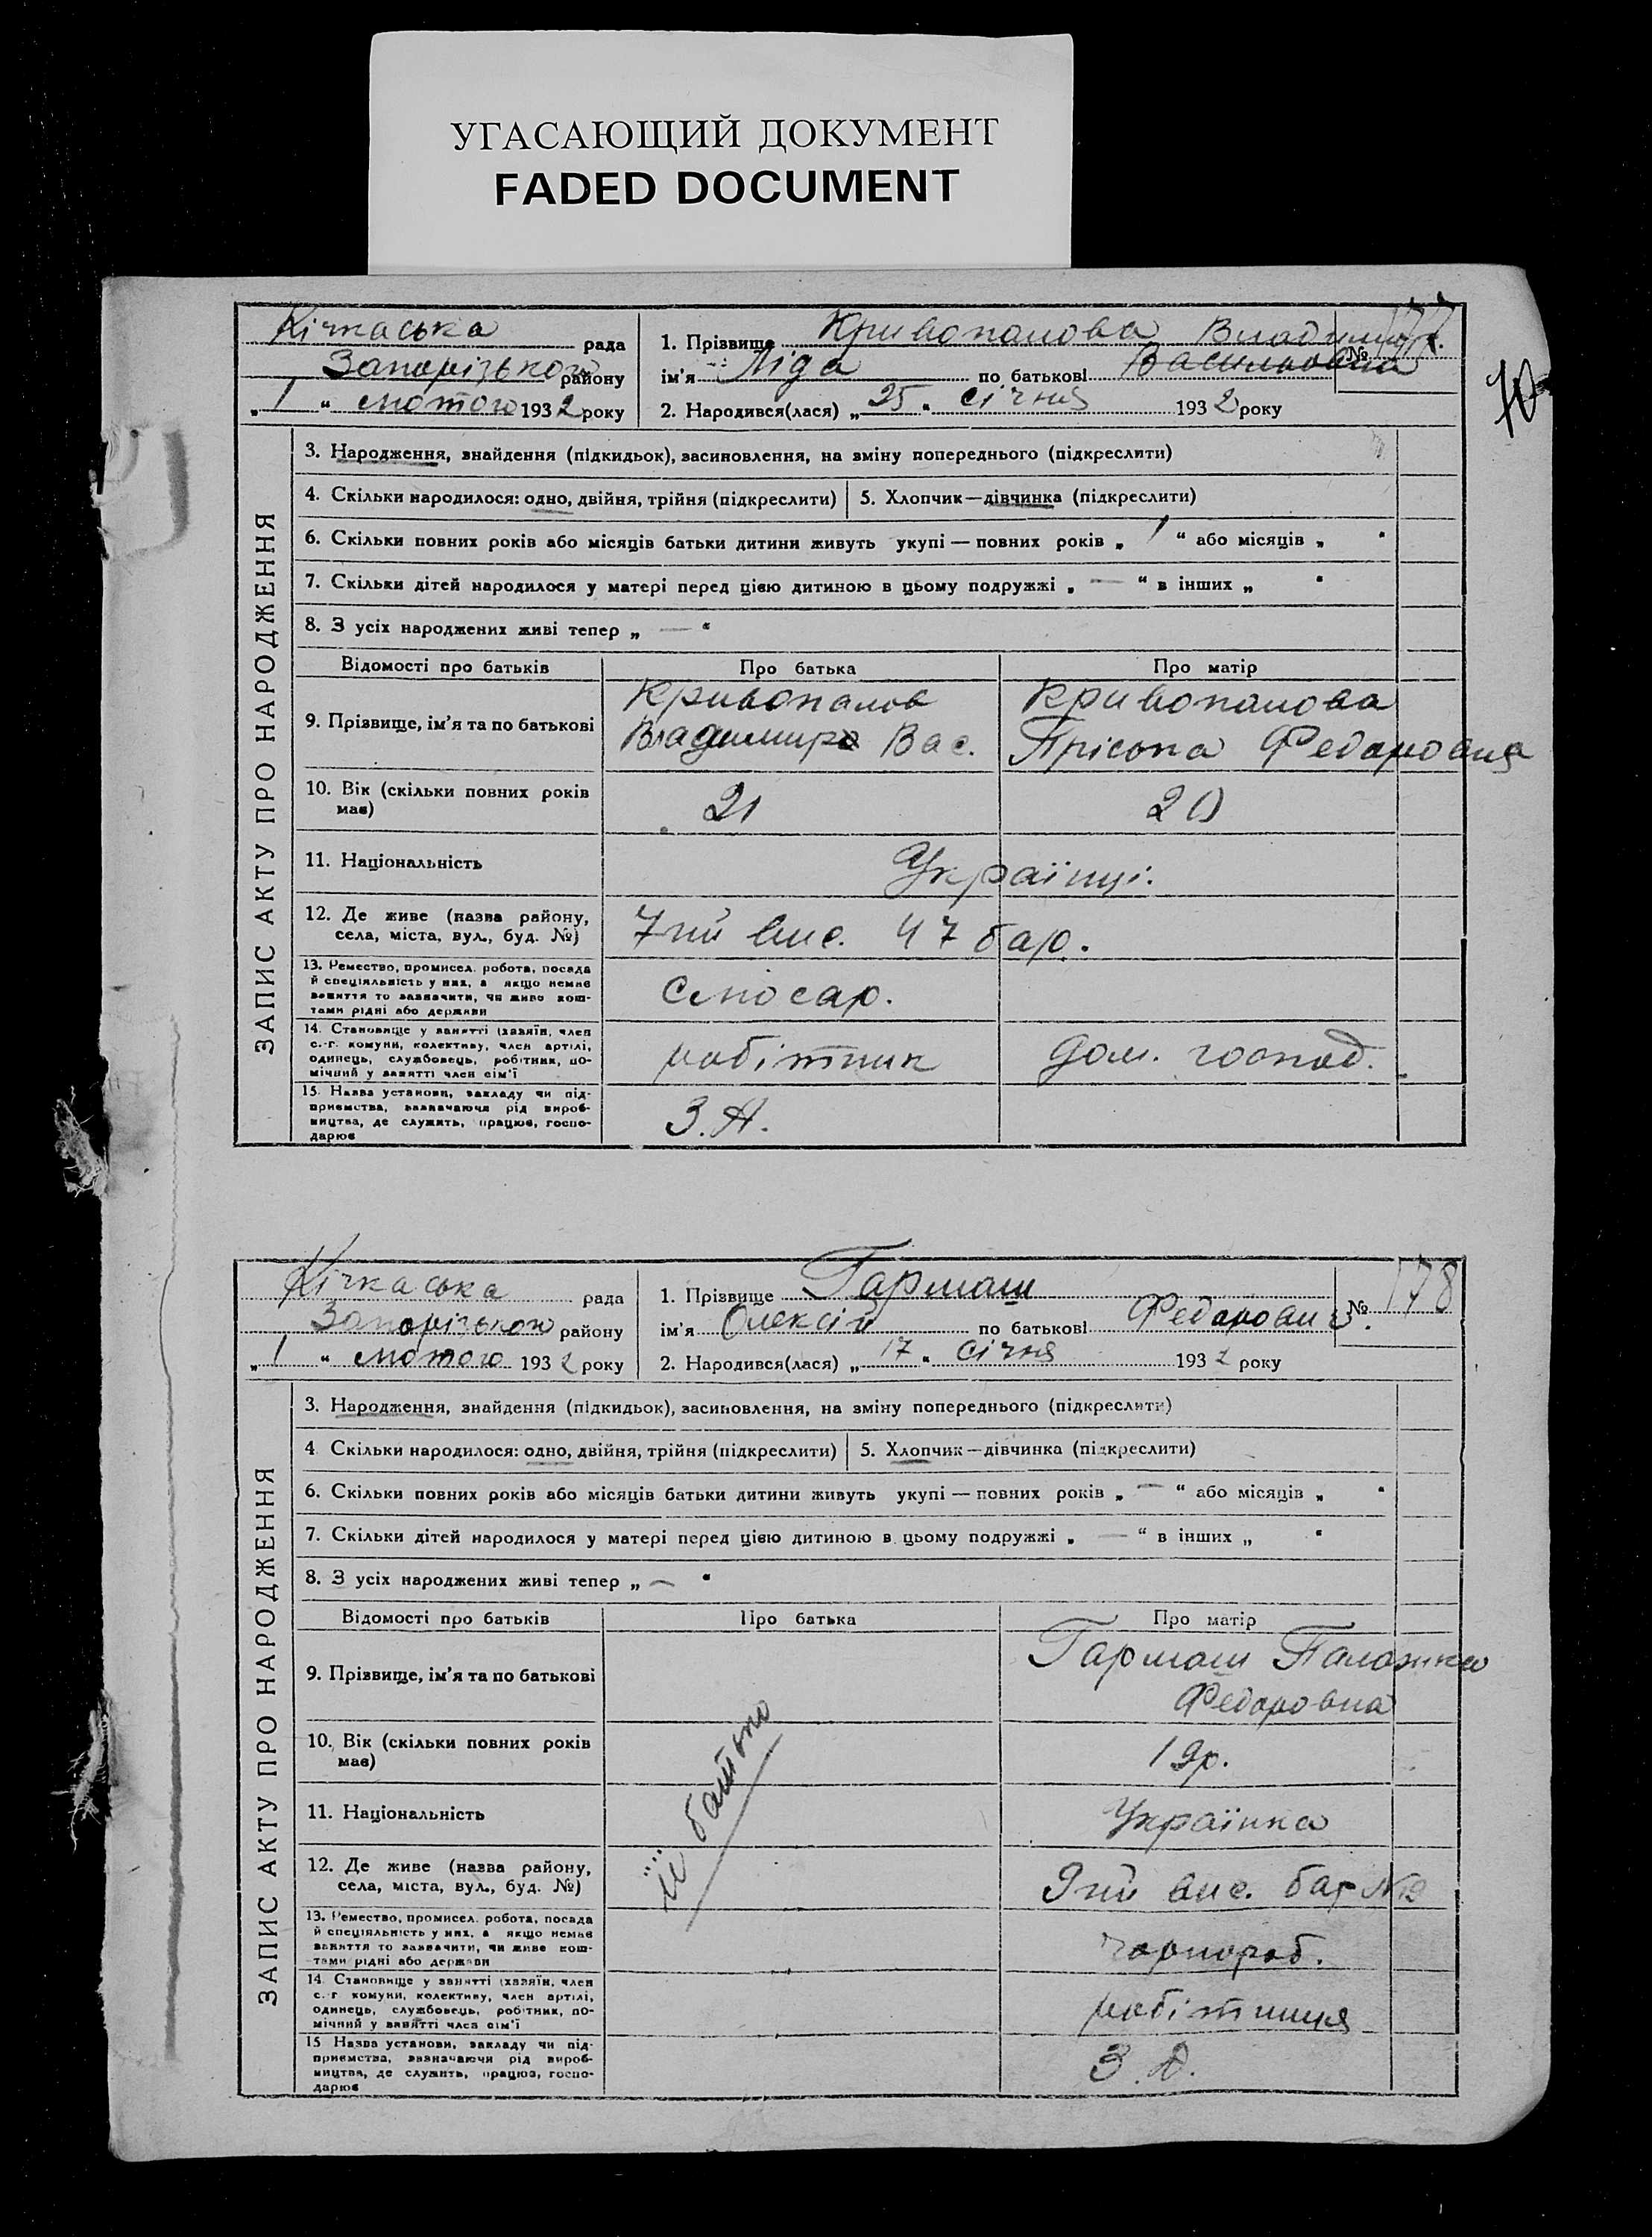 УГАСАЮЩИЙ ДОКУМЕНТ
FADED DOCUMENT
Кічкаська рада
Запорізького району
„ 1 “ лютого 1932 року
1. Прізвище Кривопалова Владимир.
ім'я Ліда по батькові Васильовна
№ 177
70
2. Народився(лася) „ 25 “ січня 1932 року
ЗАПИС АКТУ ПРО НАРОДЖЕННЯ
3. Народження, знайдення (підкидьок), засиновлення, на зміну попереднього (підкреслити)
4. Скільки народилося: одно, двійня, трійня (підкреслити) 5. Хлопчик—дівчинка (підкреслити)
6. Скільки повних років або місяців батьки дитини живуть укупі — повних років „ 1 “ або місяців „ “
7. Скільки дітей народилося у матері перед цією дитиною в цьому подружжі „ — “ в інших „ “
8. З усіх народжених живі тепер „ — “
Відомості про батьків Про батька Про матір
9. Прізвище, ім'я та по батькові
Кривопалов
Владимир Вас.
Кривопалова
Прісопа Федоровна
10. Вік (скільки повних років
має)
21 20
11. Національність Українці.
12. Де живе (назва району,
села, міста, вул., буд. №)
7ий вис. 47 бар.
13. Ремество, промисел, робота, посада
й спеціяльність у них, а якщо немає
заняття то зазначити, чи живе кош-
тами рідні або держави
слюсар.
14. Становище у занятті (хазяїн, член
с.-г. комуни, колективу, член артілі,
одинець, службовець, робітник, по-
мічний у занятті член сім'ї
робітник дом. господ.
15. Назва установи, закладу чи під-
приємства, зазначаючи рід вироб-
ництва, де служить, працює, госпо-
дарює
З.А.
Кічкаська рада
Запорізького району
„ 1 “ лютого 1932 року
1. Прізвище Гармаш
ім'я Олексій по батькові Федорович.
№ 178
2. Народився(лася) „ 17 “ січня 1932 року
ЗАПИС АКТУ ПРО НАРОДЖЕННЯ
3. Народження, знайдення (підкидьок), засиновлення, на зміну попереднього (підкреслити)
4 Скільки народилося: одно, двійня, трійня (підкреслити) 5. Хлопчик—дівчинка (підкреслити)
6. Скільки повних років або місяців батьки дитини живуть укупі — повних років „ — “ або місяців „ “
7. Скільки дітей народилося у матері перед цією дитиною в цьому подружжі „ — “ в інших „ “
8. З усіх народжених живі тепер „ — “
Відомості про батьків Про батька Про матір
9. Прізвище, ім'я та по батькові
Гармаш Палажка
Федоровна
10. Вік (скільки повних років
має)
19р.
батько
11. Національність Українка
12. Де живе (назва району,
села, міста, вул., буд. №)
9ий вис. бар №
13. Ремество, промисел, робота, посада
й спеціяльність у них, а якщо немає
заняття то зазначити, чи живе кош-
тами рідні або держави
чорнороб.
14. Становище у занятті (хазяїн, член
с.-г комуни, колективу, член артілі,
одинець, службовець, робітник, по-
мічний у занятті член сім'ї
робітниця
15 Назва установи, закладу чи під-
приємства, зазначаючи рід вироб-
ництва, де служить, працює, госпо-
дарює
З.А.